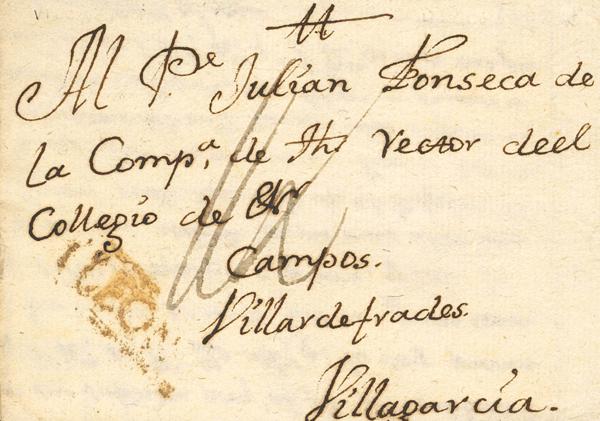 Al P.e Julian Fonseca de
la Comp.a de Jhs Rector deel
Collegio de
Campos.
Villardefrades.
Villagarcia.